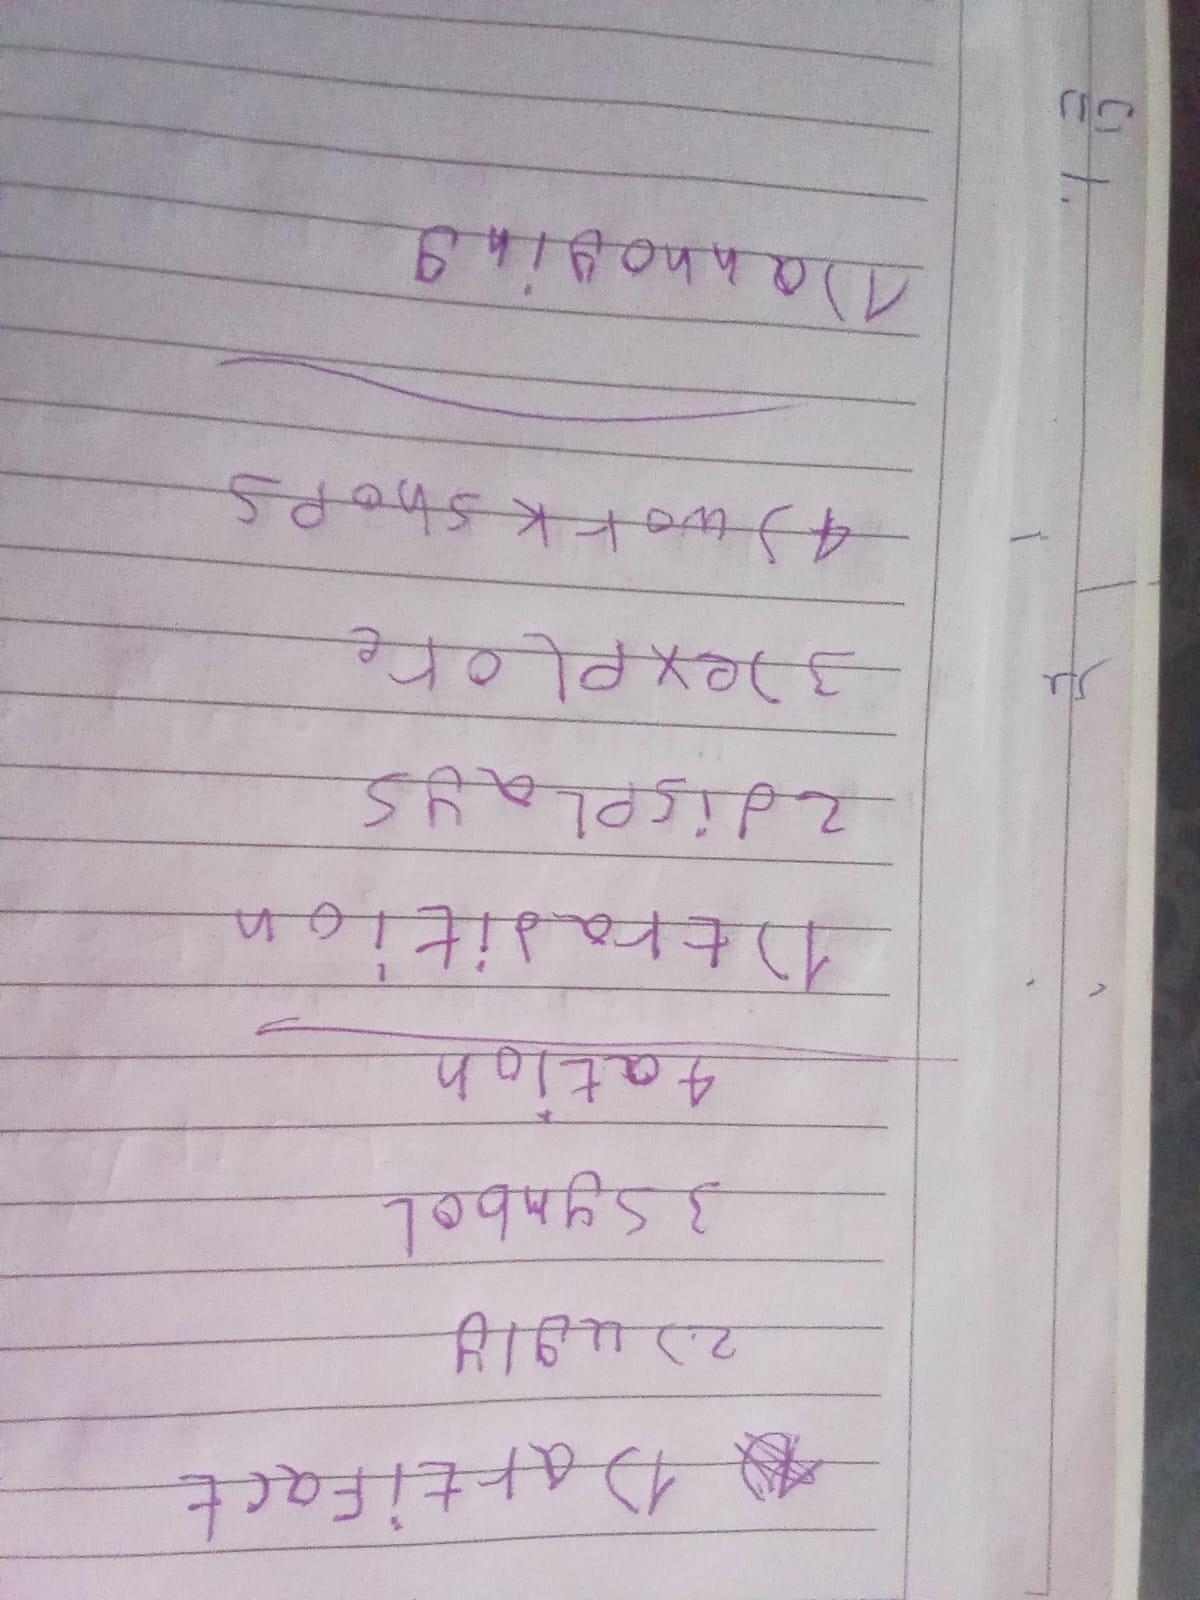 1) artifact
2) ugly
3 symbol
4 ation
1) tradition
2 displays
3) explore
4) work shops
1) annoying